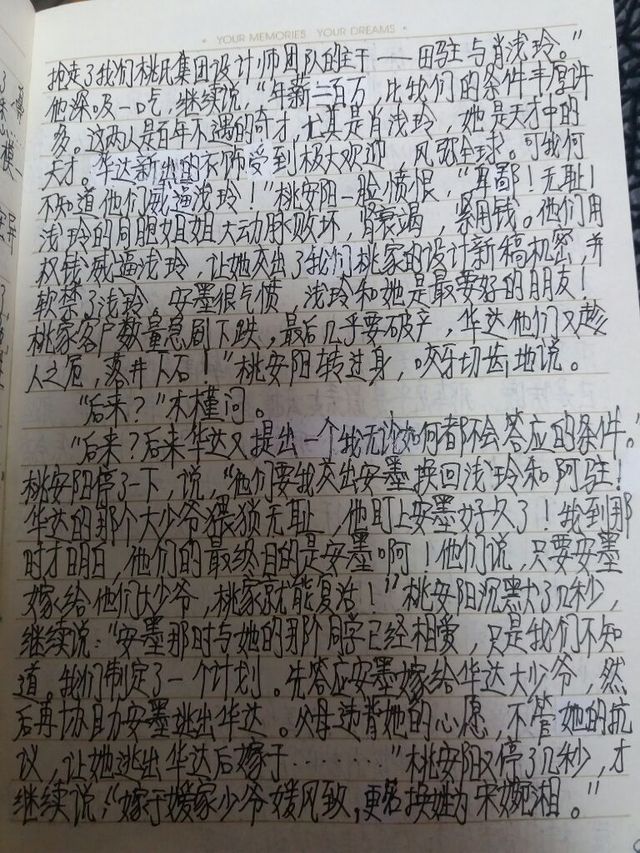 YOUR MEMORIES YOUR DREAMS
抢走了我们桃氏集团设计师团队的主干——田驻与肖浅玲。”
他深吸一口气,继续说,“年薪三百万,比我们的条件丰厚许
多。这两人是百年不遇的奇才,尤其是肖浅玲,她是天才中的
天才。华达新出的衣饰受到极大欢迎,风弥全球。可我何
不知道他们威逼浅玲!”桃安阳一脸愤恨,“卑鄙!无耻!
浅玲的同胞姐姐大动脉败坏,肾衰竭,紧用钱。他们用
权钱威逼浅玲,让她交出了我们桃家的设计新稿机密,并
软禁了浅玲。安墨很气愤,浅玲和她是最要好的朋友!
桃家客户数量急剧下跌,最后几乎要破产,华达他们又趁
人之危,落井下石!”桃安阳转过身,咬牙切齿地说。
“后来?”木槿问。
“后来?后来华达又提出一个我无论如何都不会答应的条件。”
桃安阳停了一下,说,“他们要我交出安墨换回浅玲和阿驻!
华达的那个大少爷猥琐无耻,他盯上安墨好久了!我到那
时才明白,他们的最终目的是安墨啊!他们说,只要安墨
嫁给他们大少爷,桃家就能复活!”桃安阳沉默了几秒,
继续说:“安墨那时与她的那个同学已经相爱,只是我们不知
道。我们制定了一个计划。先答应安墨嫁给华达大少爷,然
后再协助安墨逃出华达。父母违背她的心愿,不管她的抗
议,让她逃出华达后嫁于………”桃安阳又停了几秒,才
继续说,“嫁于媛家少爷媛风致,更名换姓为宋婉湘。”